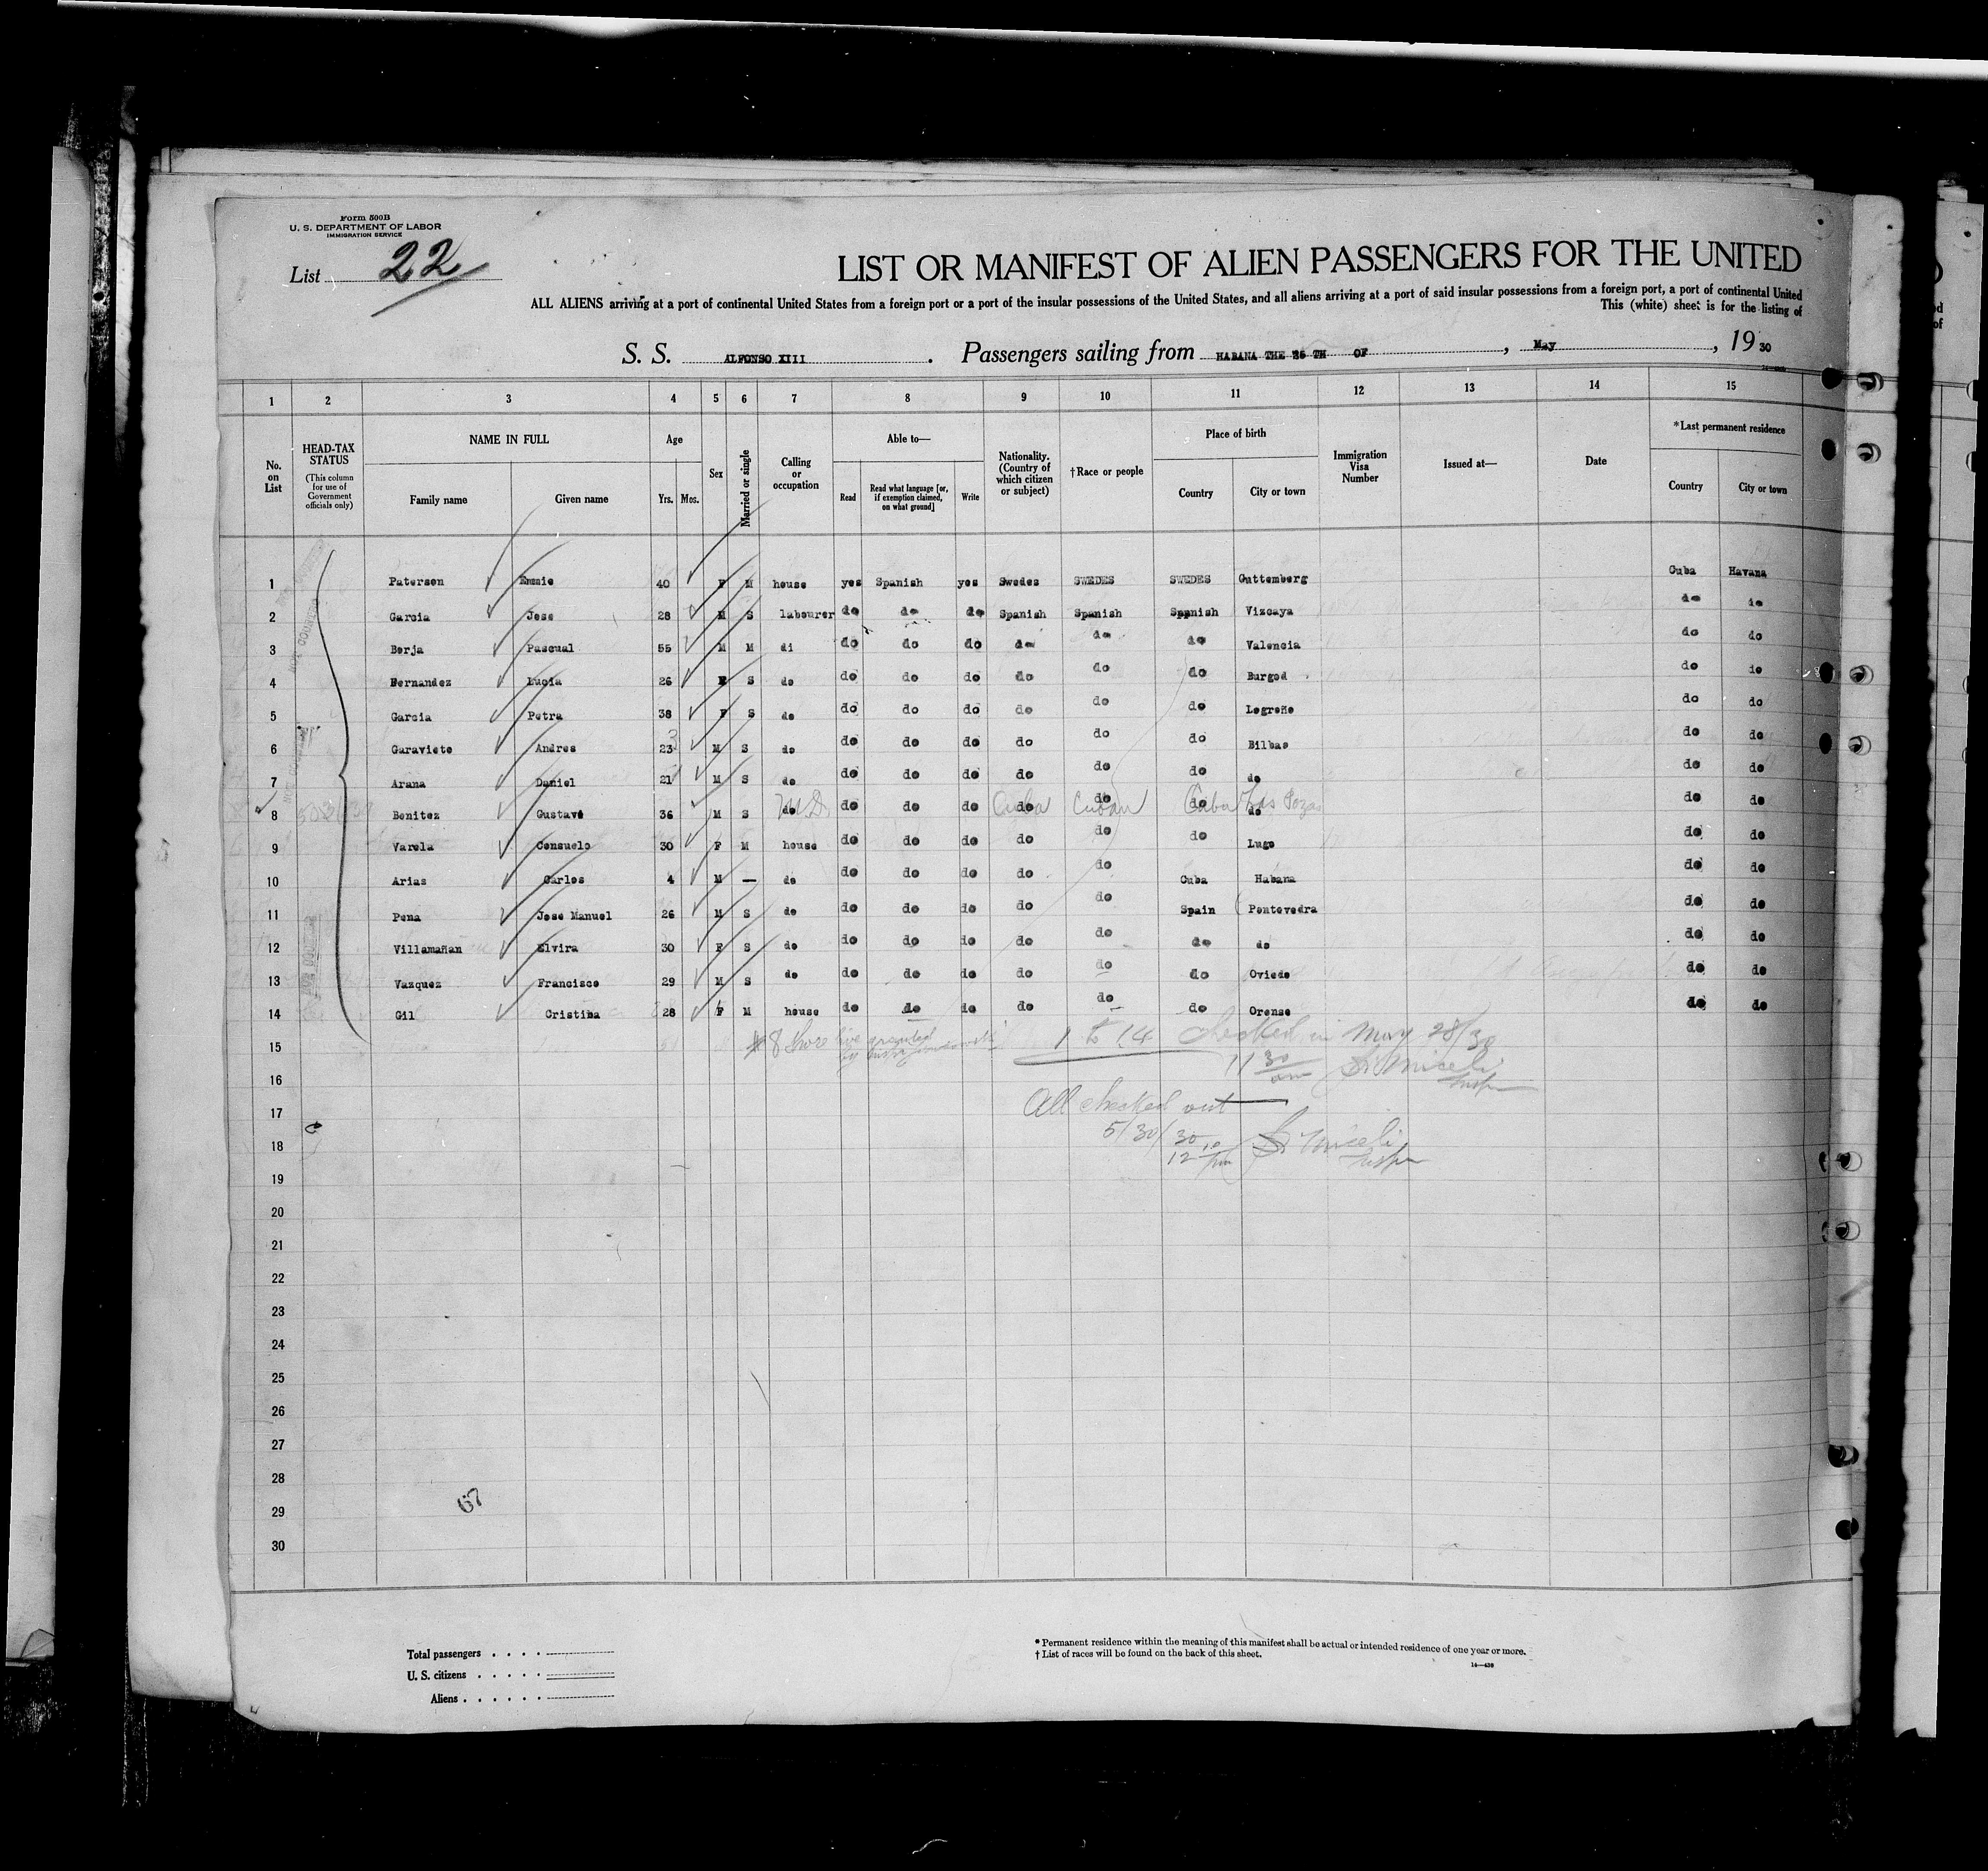 Form 500B
U. S. DEPARTMENT OF LABOR
IMMIGRATION SERVICE
List 22
LIST OR MANIFEST OF ALIEN PASSENGERS FOR THE UNITED
ALL ALIENS arriving at a port of continental United States from a foreign port or a port of the insular possessions of the United States, and all aliens arriving at a port of said insular possessions from a foreign port, a port of continental United
This (white) sheet is for the listing of
S. S. ALFONSO XIII . Passengers sailing from HABANA THE 26 TH OF , May , 19 30
1 2 3 4 5 6 7 8 9 10 11 12 13 14 15
No. on List
HEAD-TAX STATUS (This column for use of Government officials only)
NAME IN FULL
Family name Given name
Age
Yrs. Mos.
Sex
Married or single
Calling or occupation
Able to—
Read Read what language [or, if exemption claimed, on what ground] Write
Nationality. (Country of which citizen or subject)
†Race or people
Place of birth
Country City or town
Immigration Visa Number
Issued at—
Date
*Last permanent residence
Country City or town
1 Paterson Emmie 40 F M house yes Spanish yes Swedes SWEDES SWEDES Guttemberg Cuba Havana
2 Garcia Jose 28 M S labourer do do do Spanish Spanish Spanish Vizcaya do do
3 Borja Pascual 55 M M di do do do do do do Valencia do do
4 Fernandez Lucia 26 F S do do do do do do do Burgod do do
5 Garcia Petra 38 F S do do do do do do do Logroño do do
6 Garavieto Andres 23 M S do do do do do do do Bilbao do do
7 Arana Daniel 21 M S do do do do do do do do do do
8 Benitez Gustavo 36 M S do do do do do Cuba do Cuban do Cuba do Las Pozas do do
9 Varela Consuelo 30 F M house do do do do do do Lugo do do
10 Arias Carlos 4 M — do do do do do do Cuba Habana do do
11 Pena Jose Manuel 26 M S do do do do do do Spain Pontevedra do do
12 Villamañan Elvira 30 F S do do do do do do do do do do
13 Vazquez Francisco 29 M S do do do do do do do Oviedo do do
14 Gil Cristina 28 F M house do do do do do do Orense do do
15 # 8 Shore granted 1 to 14 checked in May 28/30
16 11 30 am S. Miceli Insp
17 All checked out
18 5/30/30 12 10 pm S. Miceli Insp
19
20
21
22
23
24
25
26
27
28
29
30
67
Total passengers . . . .
U. S. citizens . . . . .
Aliens . . . . . .
* Permanent residence within the meaning of this manifest shall be actual or intended residence of one year or more.
† List of races will be found on the back of this sheet.
14—430